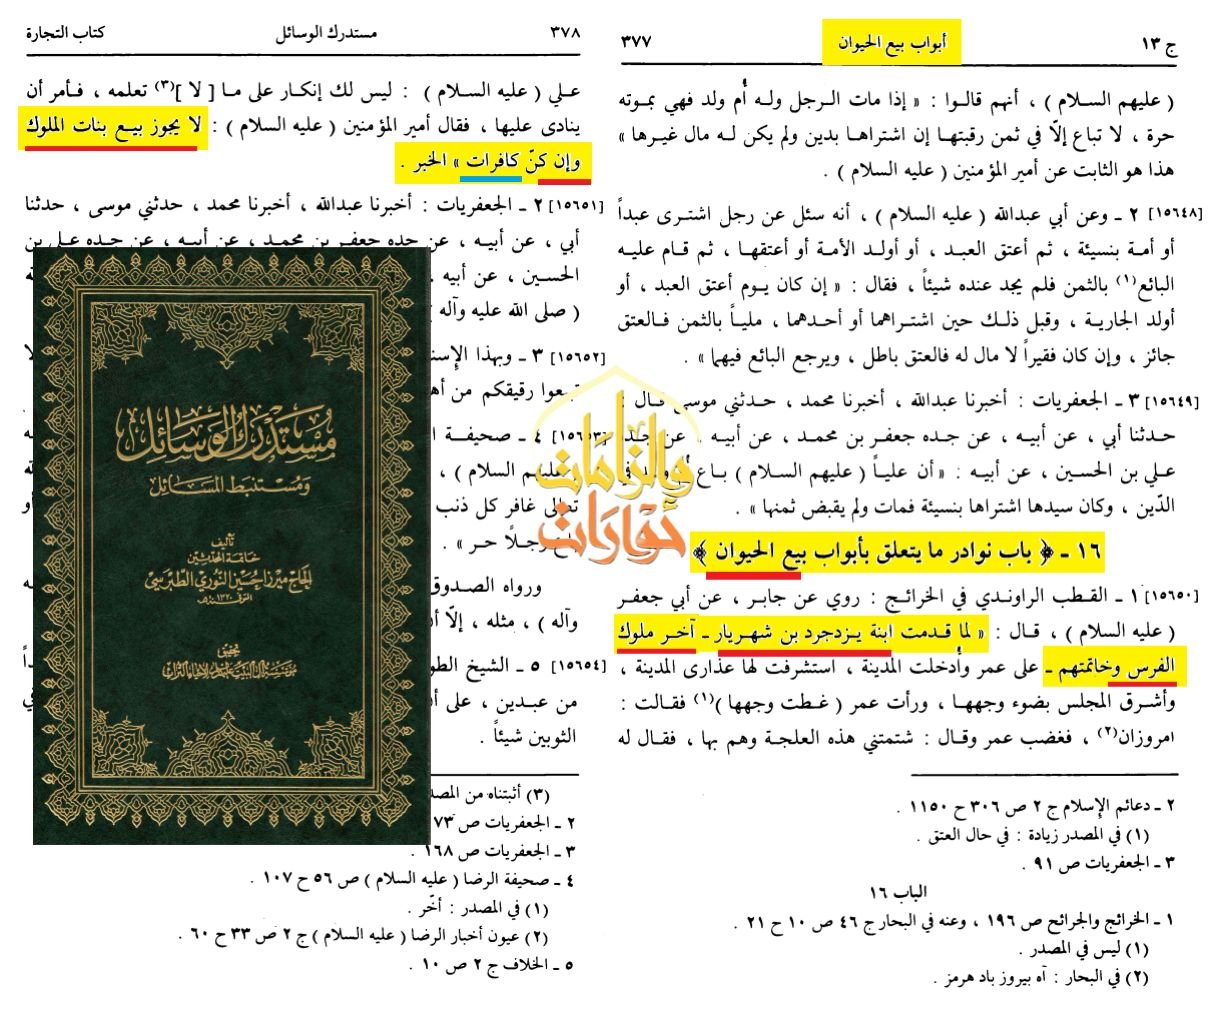 ج ١٣ أبواب بيع الحيوان ٣٧٧
( عليهم السلام ) ، أنهم قالوا : « إذا مات الرجل وله أُم ولد فهي بموته
حرة ، لا تباع إلّا في ثمن رقبتها إن اشتراها بدين ولم يكن له مال غيرها »
هذا هو الثابت عن أمير المؤمنين ( عليه السلام ) .
[١٥٦٤٨] ٢ ـ وعن أبي عبدالله ( عليه السلام ) ، أنه سئل عن رجل اشترى عبداً
أو أمة بنسيئة ، ثم أعتق العبد ، أو أولد الأمة أو أعتقها ، ثم قام عليه
البائع(١) بالثمن فلم يجد عنده شيئاً ، فقال : « إن كان يوم أعتق العبد ، أو
أولد الجارية ، وقبل ذلك حين اشتراهما أو أحدهما ، ملياً بالثمن فالعتق
جائز ، وإن كان فقيراً لا مال له فالعتق باطل ، ويرجع البائع فيهما » .
[١٥٦٤٩] ٣ ـ الجعفريات : أخبرنا عبدالله ، أخبرنا محمد ، حدثني موسى قال :
حدثنا أبي ، عن أبيه ، عن جده جعفر بن محمد ، عن أبيه ، عن جده
علي بن الحسين ، عن أبيه : « أن علياً ( عليهم السلام ) باع أم ولد في
الدّين ، وكان سيدها اشتراها بنسيئة فمات ولم يقبض ثمنها » .
١٦ ـ ﴿ باب نوادر ما يتعلق بأبواب بيع الحيوان ﴾
[١٥٦٥٠] ١ ـ القطب الراوندي في الخرائج : روي عن جابر ، عن أبي جعفر
( عليه السلام ) ، قال : « لما قدمت ابنة يزدجرد بن شهريار ـ آخر ملوك
الفرس وخاتمتهم ـ على عمر وأُدخلت المدينة ، استشرفت لها عذارى المدينة ،
وأشرق المجلس بضوء وجهها ، ورأت عمر ( غطت وجهها )(١) فقالت :
امروزان(٢) ، فغضب عمر وقال : شتمتني هذه العلجة وهم بها ، فقال له
٢ ـ دعائم الإسلام ج ٢ ص ٣٠٦ ح ١١٥٠ .
(١) في المصدر زيادة : في حال العتق .
٣ ـ الجعفريات ص ٩١ .
الباب ١٦
١ ـ الخرائج والجرائح ص ١٩٦ ، وعنه في البحار ج ٤٦ ص ١٠ ح ٢١ .
(١) ليس في المصدر .
(٢) في البحار : آه بيروز باد هرمز .
٣٧٨ مستدرك الوسائل كتاب التجارة
علي ( عليه السلام ) : ليس لك إنكار على ما [ لا ](٣) تعلمه ، فأمر أن
ينادى عليها ، فقال أمير المؤمنين ( عليه السلام ) : لا يجوز بيع بنات الملوك
وإن كنّ كافرات » الخبر .
[١٥٦٥١] ٢ ـ الجعفريات : أخبرنا عبدالله ، أخبرنا محمد ، حدثني موسى ، حدثنا
أبي ، عن أبيه ، عن جده جعفر بن محمد ، عن أبيه ، عن جده علي بن
الحسين ، عن أبيه
( صلى الله عليه وآله
[١٥٦٥٢] ٣ ـ وبهذا الإسن
تبيعوا رقيقكم من أه
٤ ـ صحيفة
( عليهم السلام ) ،
تعالى غافر كل ذنب
رجلًا حر » .
ورواه الصدوق
وآله ) ، مثله ، إلّا أن
[١٥٦٥٤] ٥ ـ الشيخ الطو
من عبدين ، على أن
الثوبين شيئاً .
(٣) أثبتناه من المصد
٢ ـ الجعفريات ص ٧٣
٣ ـ الجعفريات ص ١٦٨ .
٤ ـ صحيفة الرضا ( عليه السلام ) ص ٥٦ ح ١٠٧ .
(١) في المصدر : أخّر .
(٢) عيون أخبار الرضا ( عليه السلام ) ج ٢ ص ٣٣ ح ٦٠ .
٥ ـ الخلاف ج ٢ ص ١٠ .
مستدرك الوسائل
ومستنبط المسائل
تأليف
خاتمة المحدثين
الحاج ميرزا حسين النوري الطبرسي
المتوفى ١٣٢٠ هـ
تحقيق
مؤسسة آل البيت عليهم السلام لإحياء التراث
والزامات
حوارات